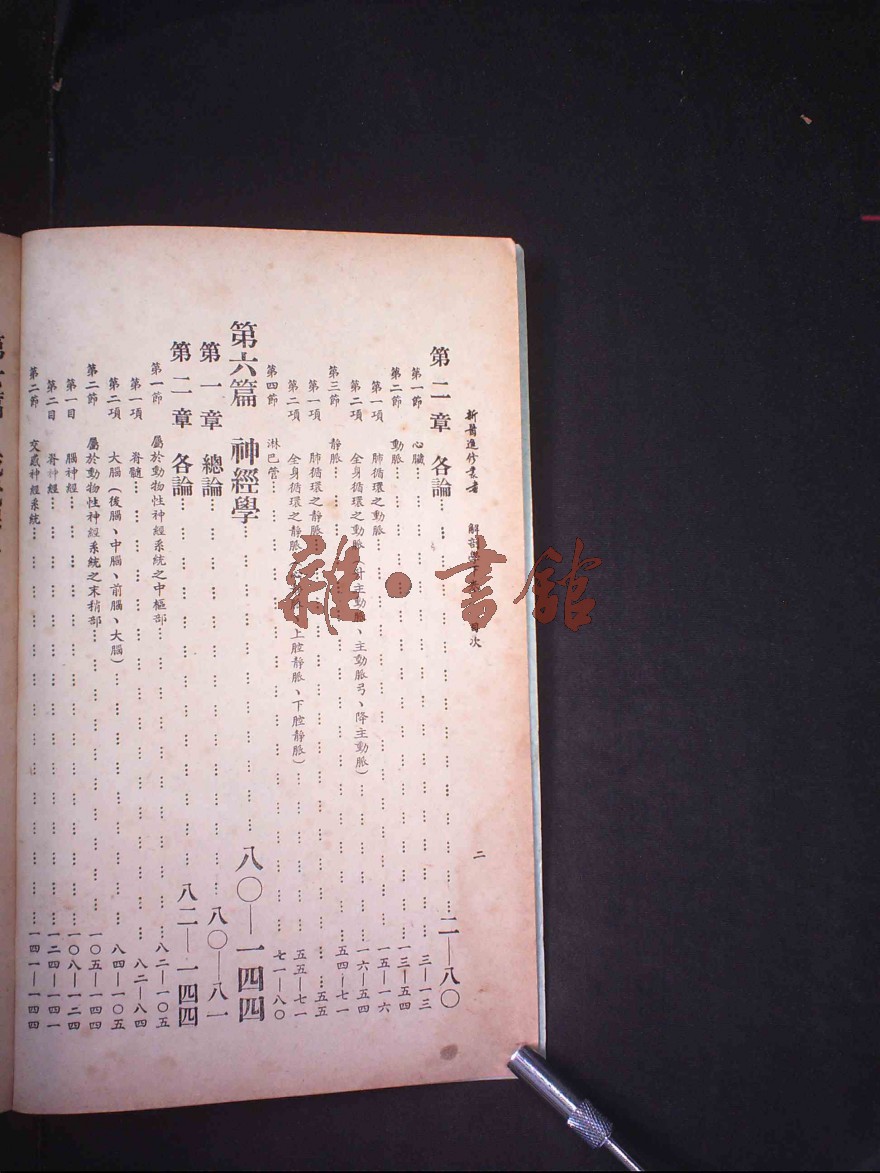 新醫進修叢書 解剖學 目次 二
第二章 各論……二—八〇
第一節 心臟……三—一三
第二節 動脈……一三—五四
第一項 肺循環之動脈……一五—一六
第二項 全身循環之動脈 主動脈、主動脈弓、降主動脈)……一六—五四
第三節 靜脈……五四—七一
第一項 肺循環之靜脈……五五
第二項 全身循環之靜脈 上腔靜脈、下腔靜脈)……五五—七一
第四節 淋巴管……七一—八〇
第六篇 神經學……八〇—一四四
第一章 總論……八〇—八一
第二章 各論……八二—一四四
第一節 屬於動物性神經系統之中樞部……八二—一〇五
第一項 脊髓……八二—八四
第二項 大腦(後腦、中腦、前腦、大腦)……八四—一〇五
第二節 屬於動物性神經系統之末稍部……一〇五—一四四
第一目 腦神經……一〇八—一二四
第二目 脊神經……一二四—一四一
第二節 交感神經系統……一四一—一四四
雜·書館